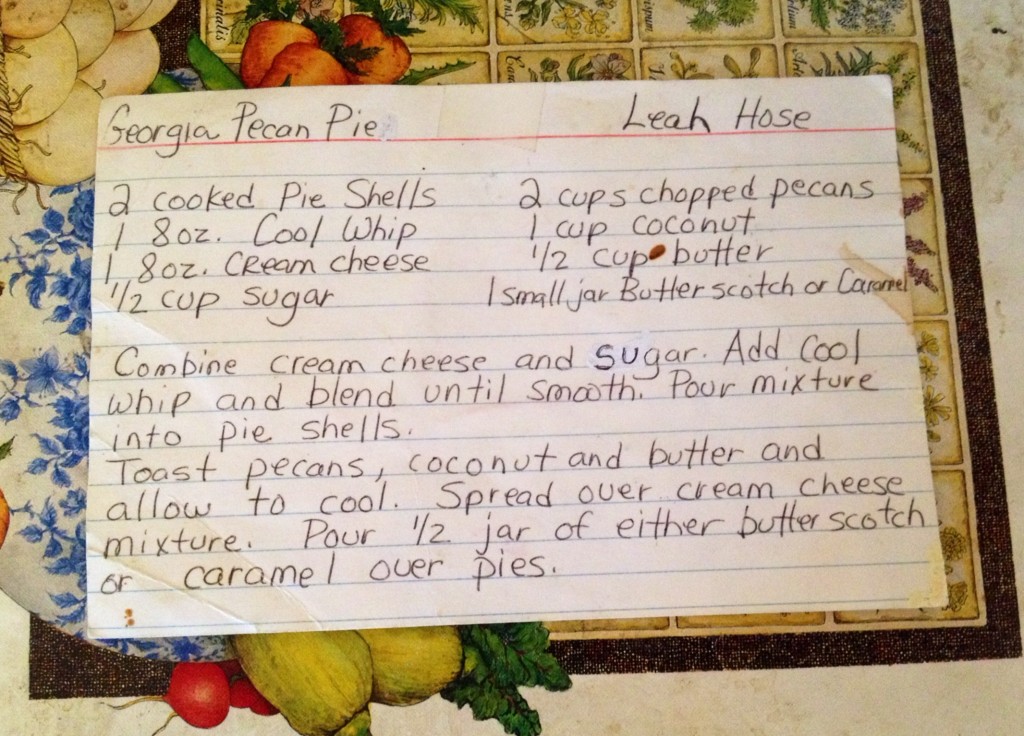 Georgia Pecan Pie Leah Hose
2 cooked Pie Shells 2 cups chopped pecans
1 8oz. Cool Whip 1 cup coconut
1 8oz. Cream cheese 1/2 cup butter
1/2 cup sugar 1 small jar Butterscotch or Caramel
Combine cream cheese and sugar. Add Cool
whip and blend until smooth. Pour mixture
into pie shells.
Toast pecans, coconut and butter and
allow to cool. Spread over cream cheese
mixture. Pour 1/2 jar of either butterscotch
or caramel over pies.